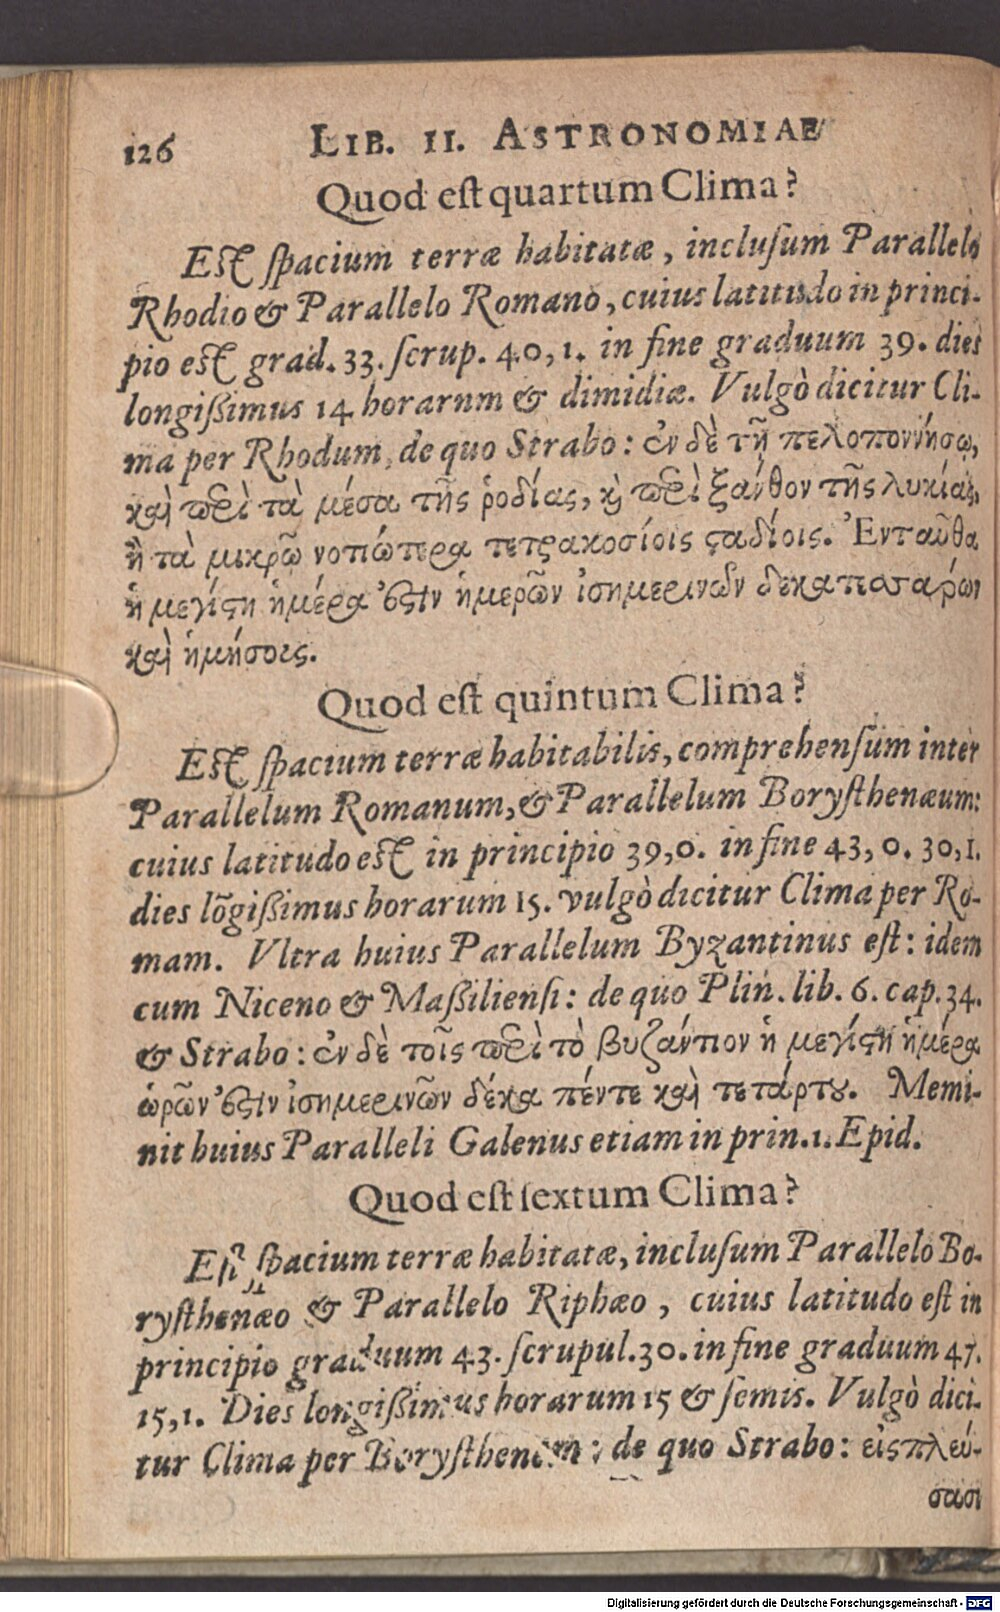 126 LIB. II. ASTRONOMIAE
Quod est quartum Clima?
Est spacium terræ habitatæ, inclusum Parallelo
Rhodio & Parallelo Romano, cuius latitudo in princi-
pio est grad. 33. scrup. 40, 1. in fine graduum 39. dies
longißimus 14 horarnm & dimidiæ. Vulgò dicitur Cli-
ma per Rhodum, de quo Strabo: ἐν δὲ τῇ πελοποννήσῳ,
καὶ περὶ τὰ μέσα τῆς ῥοδίας, κὶ περὶ ξάνθον τῆς λυκίας,
ἢ τὰ μικρῶ νοτιώτερα τετρακοσίοις ϛαδίοις. Ἐνταῦθα
ἡ μεγίϛη ἡμέρα ἐϛὶν ἡμερῶν ἰσημερινῶν δεκατεσσαρών
καὶ ἡμήσοις.
Quod est quintum Clima?
Est spacium terræ habitabilis, comprehensum inter
Parallelum Romanum, & Parallelum Borysthenæum:
cuius latitudo est in principio 39, 0. in fine 43, 0. 30, 1.
dies lõgißimus horarum 15. vulgò dicitur Clima per Ro-
mam. Vltra huius Parallelum Byzantinus est: idem
cum Niceno & Maßiliensi: de quo Plin. lib. 6. cap. 34.
& Strabo: ἐν δὲ τοῖς περὶ τὸ βυζάντιον ἡ μεγίϛη ἡμέρα
ὡρῶν ἐϛὶν ἰσημερινῶν δέκα πέντε καὶ τετάρτȣ. Memi-
nit huius Paralleli Galenus etiam in prin. 1. Epid.
Quod est sextum Clima?
Est spacium terræ habitatæ, inclusum Parallelo Bo-
rysthenæo & Parallelo Riphæo, cuius latitudo est in
principio graduum 43. scrupul. 30. in fine graduum 47.
15, 1. Dies longißimus horarum 15 & semis. Vulgò dici-
tur Clima per Borysthenem: de quo Strabo: εἰς πλεύ-
σασι
Digitalisierung gefördert durch die Deutsche Forschungsgemeinschaft - DFG